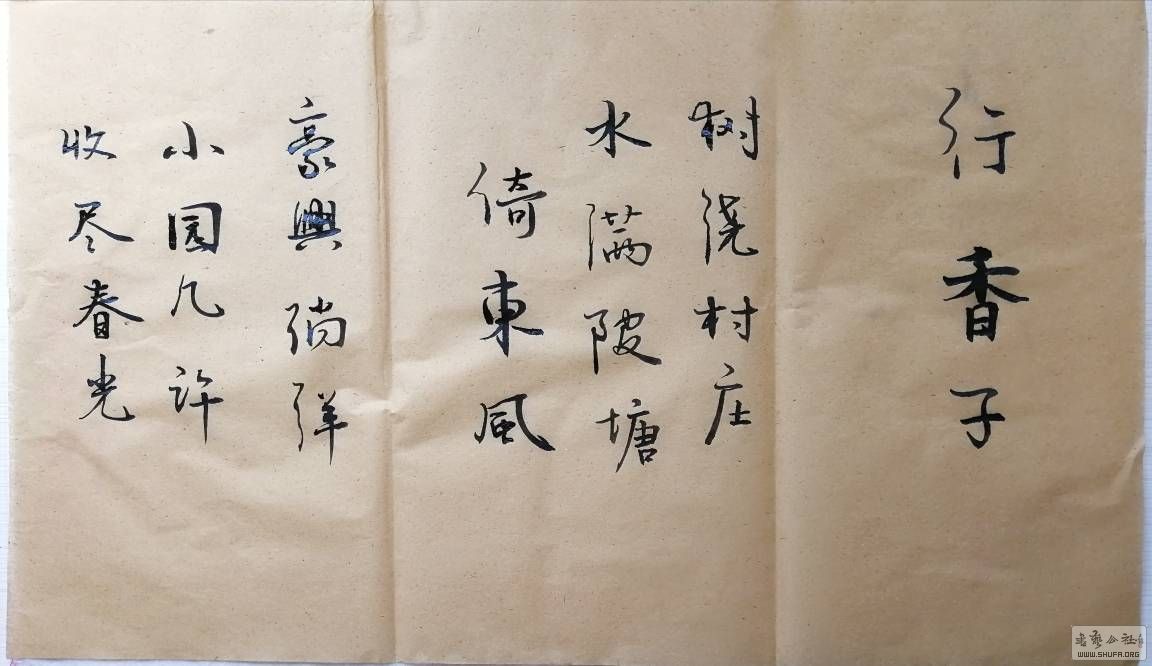 行香子
树绕村庄
水满陂塘
倚東風
豪興徜徉
小园几许
收尽春光
书艺公社
WWW.SHUFA.ORG